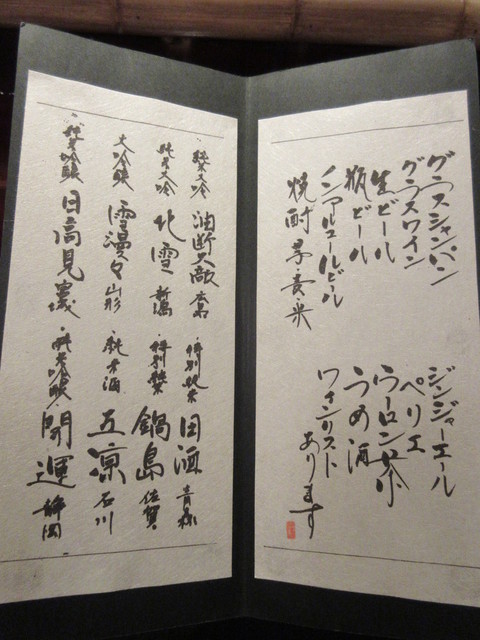 グラスシャンパン
グラスワイン
生ビール
瓶ビール
ノンアルコールビール
焼酎 芋・麦・米
ジンジャーエール
ペリエ
ウーロン茶
うめ酒
ワインリスト
あります
・純米大吟 油断大敵 広島
・純米大吟 北雪 新潟
・大吟醸 雪漫々 山形
・純米吟醸 日高見 宮城
・特別純米 田酒 青森
・特別純米 鍋島 佐賀
・純米酒 五凛 石川
・純米吟醸 開運 静岡